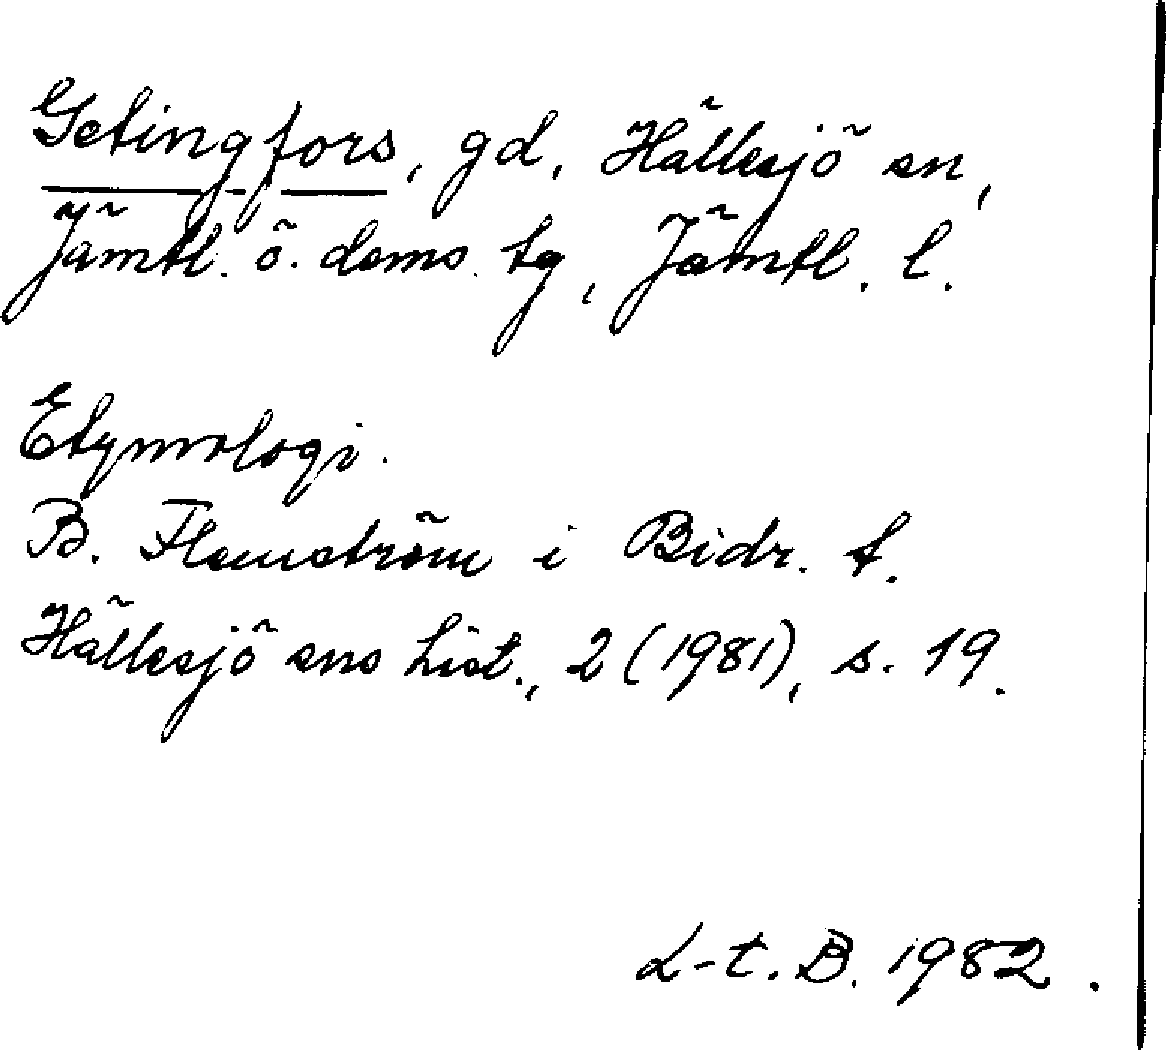 Getingfors, gd, Hällesjö sn,
Jämtl. ö. doms. tg, Jämtl. l.
Etymologi.
B. Flemström i Bidr. t.
Hällesjö sns hist., 2 (1981), s. 19.
L-t. B. 1982.